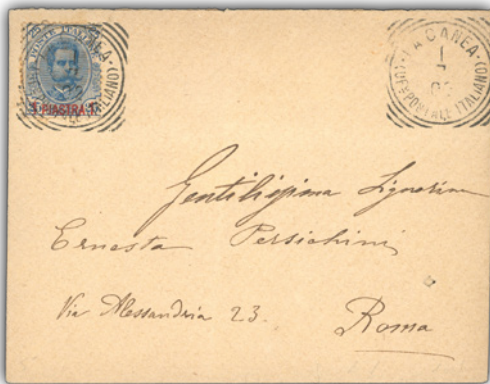 1 PIASTRA 1
LA CANEA
(UFF POSTALE ITALIANO)
1
Gentilissima Signorina
Ernesta Persichini
Via Alessandria 23.
Roma